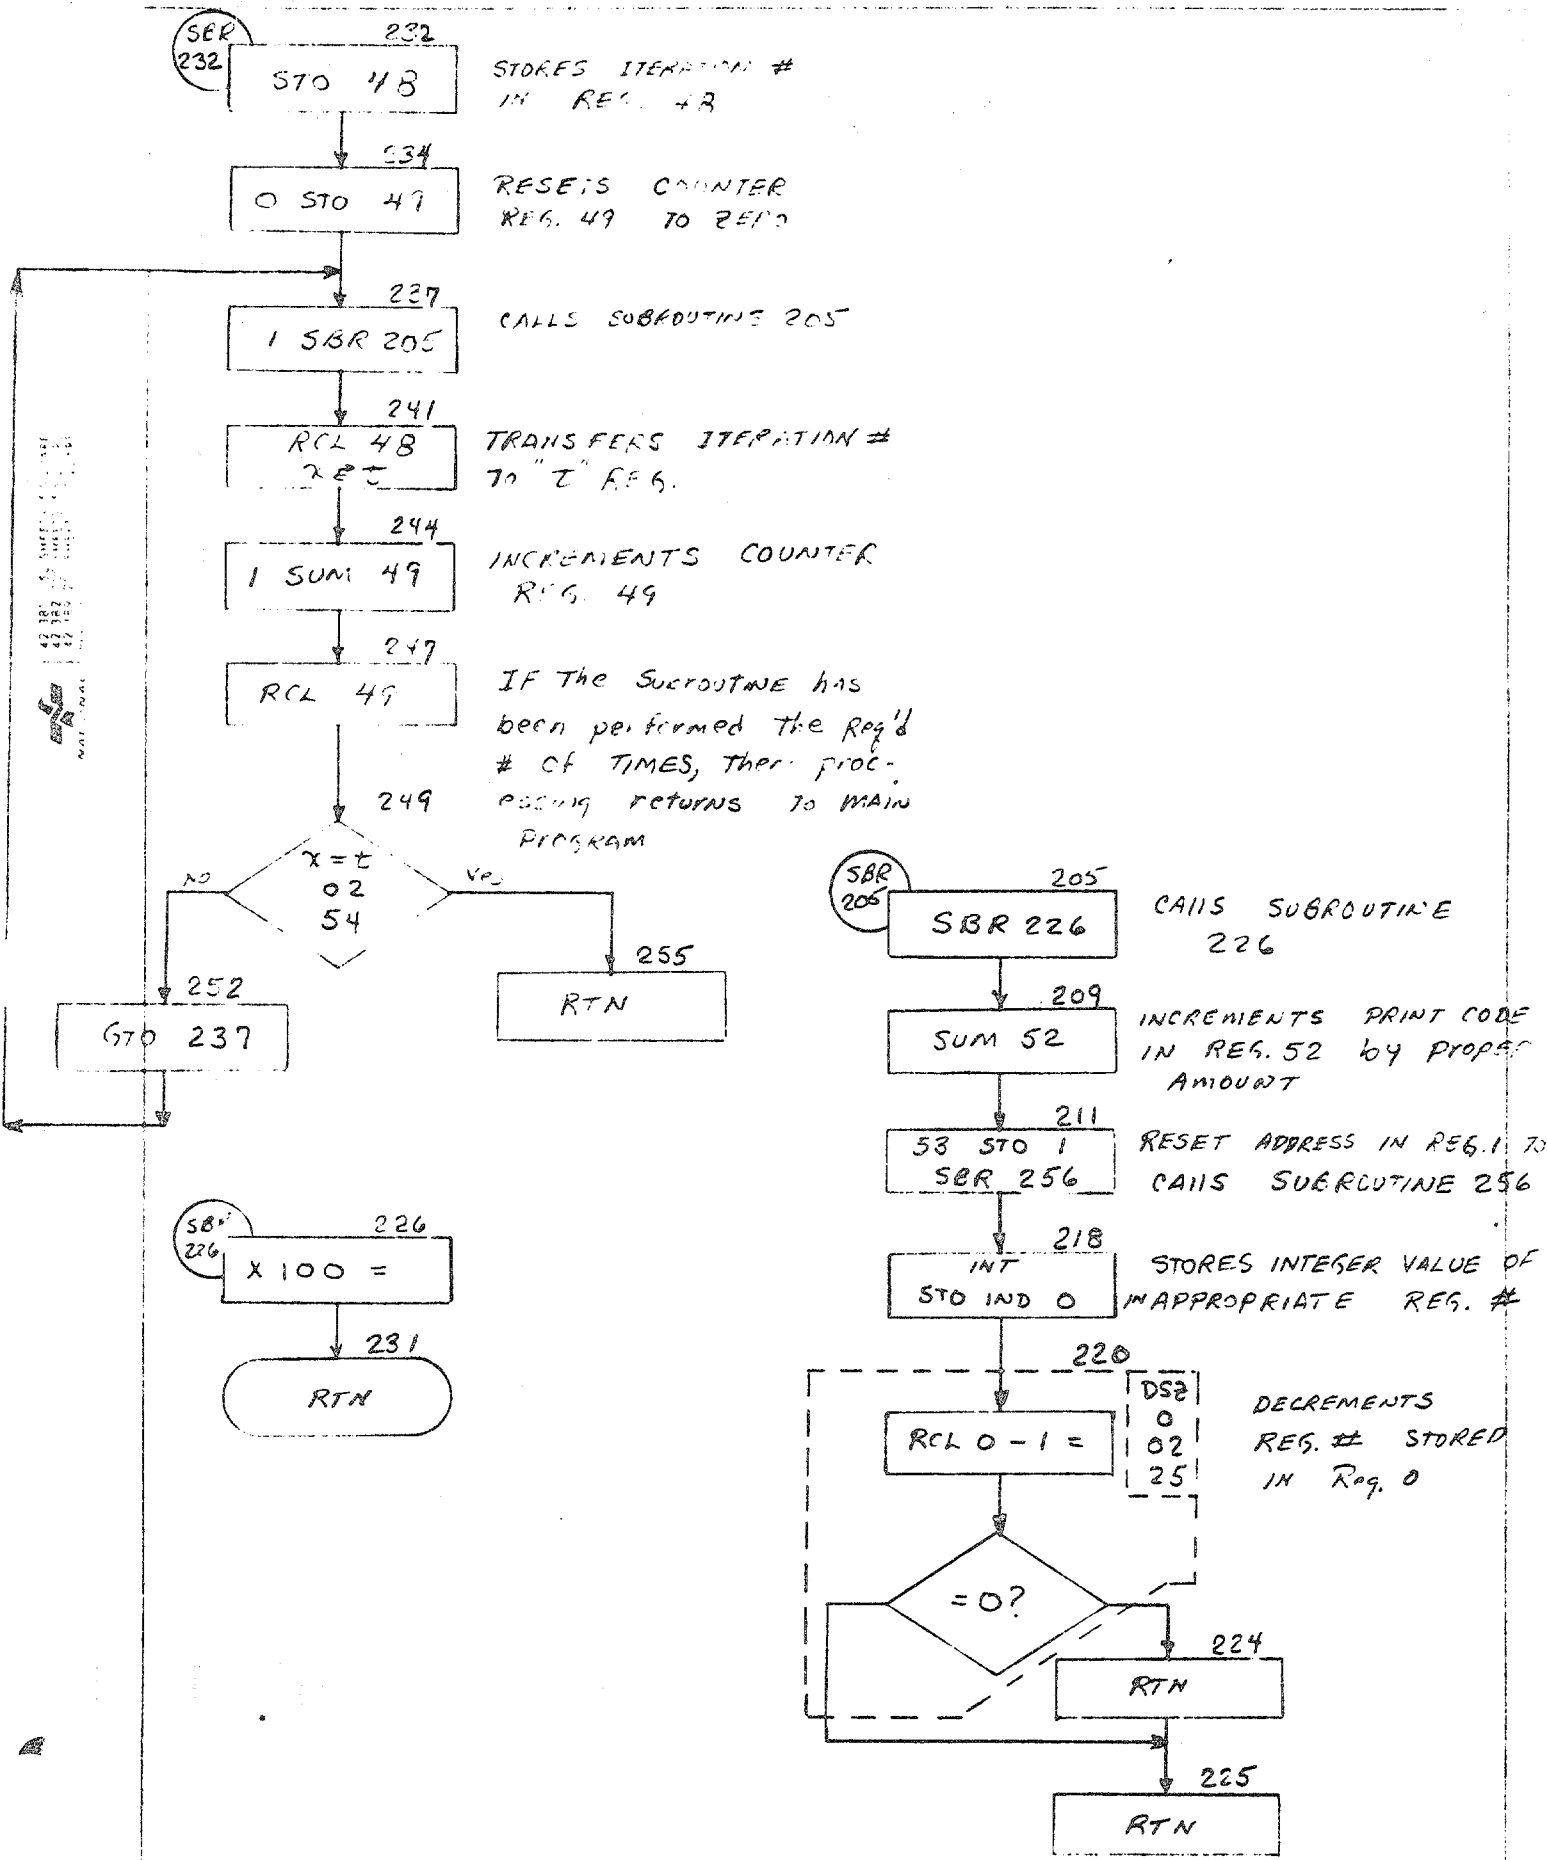 SBR
232
232
STO 48
STORES ITERATION #
IN REG. 48
234
0 STO 49
RESETS COUNTER
REG. 49 TO ZERO
237
1 SBR 205
CALLS SUBROUTINE 205
241
RCL 48
x ⇄ t
TRANSFERS ITERATION #
TO "T" REG.
244
1 SUM 49
INCREMENTS COUNTER
REG. 49
247
RCL 49
IF The SUBROUTINE has
been performed the Req'd
# of TIMES, Then proc-
essing returns To MAIN
PrOGRAM
249
x = t
02
54
NO
Yes
252
GTO 237
255
RTN
SBR
226
226
X 100 =
231
RTN
SBR
205
205
SBR 226
CAllS SUBROUTINE
226
209
SUM 52
INCREMENTS PRINT CODE
IN REG. 52 by PROPER
AMOUNT
211
53 STO 1
SBR 256
RESET ADDRESS IN REG. 1 TO
CAllS SUBROUTINE 256
218
INT
STO IND 0
STORES INTEGER VALUE OF
IN APPROPRIATE REG. #
220
RCL 0 - 1 =
DSZ
0
02
25
DECREMENTS
REG. # STORED
IN Reg. 0
= 0?
224
RTN
225
RTN
42 381
42 382